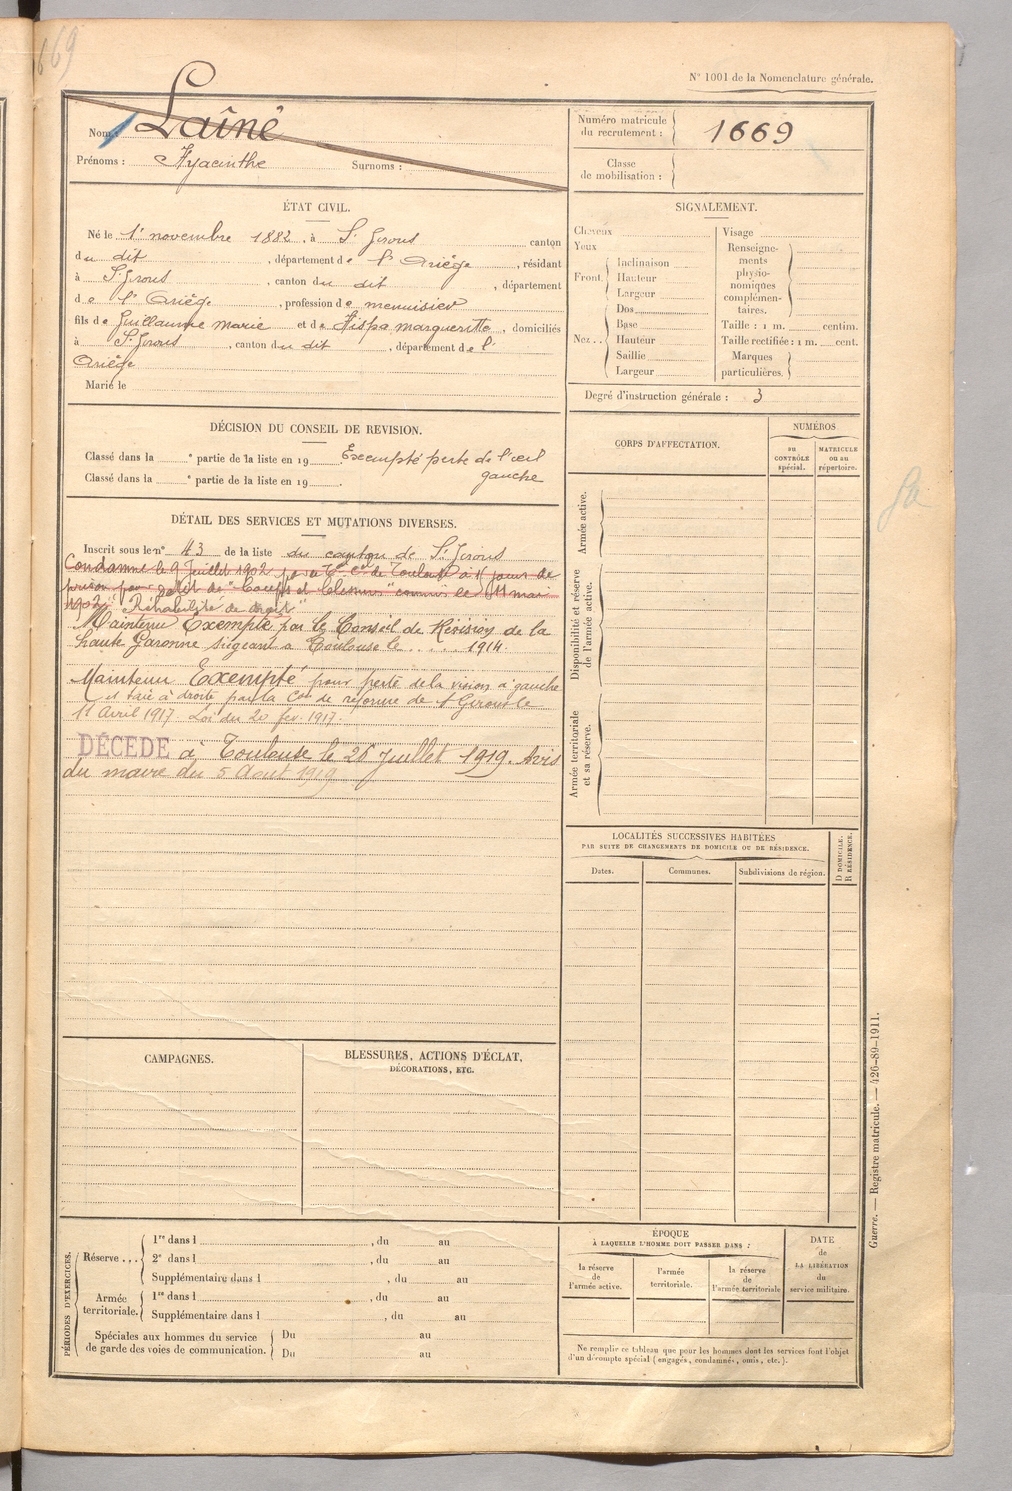 669
N° 1001 de la Nomenclature générale.
Nom : Laîné
Prénoms : Hyacinthe Surnoms :
Numéro matricule du recrutement : 1669
Classe de mobilisation :
ÉTAT CIVIL.
Né le 1er novembre 1882, à St Girons canton
du dit, département de l'Ariège, résidant
à St Girons, canton du dit, département
de l'Ariège, profession de menuisier
fils de Guillaume Marie et de Fispa marguerite, domiciliés
à St Girons, canton du dit, département de l'
Ariège
Marié le
SIGNALEMENT.
Cheveux
Yeux
Front.
Inclinaison
Hauteur
Largeur
Nez..
Dos
Base
Hauteur
Saillie
Largeur
Visage
Renseigne-
ments
physio-
nomiques
complémen-
taires.
Taille : 1 m. centim.
Taille rectifiée : 1 m. cent.
Marques
particulières.
Degré d'instruction générale : 3
DÉCISION DU CONSEIL DE REVISION.
Classé dans la e partie de la liste en 19 Exempté perte de l'œil
Classé dans la e partie de la liste en 19 . gauche
DÉTAIL DES SERVICES ET MUTATIONS DIVERSES.
Inscrit sous le n° 43 de la liste du canton de St Girons
Condamné le 9 Juillet 1902 par le de Toulouse à 15 jours de
prison pour délit de "Coups et blessures" commis le 11 mai
1902. "Réhabilité de droit"
Maintenu Exempté par le Conseil de Révision de la
haute Garonne siégeant à Toulouse le . . . . . 1914.
Maintenu Exempté pour perte de la vision à gauche
et taie à droite par la Con de réforme de St Girons le
11 Avril 1917. Loi du 20 fev. 1917.
DÉCÉDÉ à Toulouse le 26 Juillet 1919. Avis
du maire du 5 Août 1919
CORPS D'AFFECTATION.
NUMÉROS
au CONTRÔLE spécial.
MATRICULE ou au répertoire.
Armée active.
Disponibilité et réserve de l'armée active.
Armée territoriale et sa réserve.
LOCALITÉS SUCCESSIVES HABITÉES
PAR SUITE DE CHANGEMENTS DE DOMICILE OU DE RÉSIDENCE.
Dates.
Communes.
Subdivisions de région.
D DOMICILE.
R RÉSIDENCE.
CAMPAGNES.
BLESSURES, ACTIONS D'ÉCLAT,
DÉCORATIONS, ETC.
PÉRIODES D'EXERCICES.
Réserve ...
1re dans l , du au
2e dans l , du au
Supplémentaire dans l , du au
Armée territoriale.
1re dans l , du au
Supplémentaire dans l , du au
Spéciales aux hommes du service
de garde des voies de communication.
Du au
Du au
ÉPOQUE
À LAQUELLE L'HOMME DOIT PASSER DANS :
la réserve de l'armée active.
l'armée territoriale.
la réserve de l'armée territoriale
DATE
de
LA LIBÉRATION
du
service militaire.
Ne remplir ce tableau que pour les hommes dont les services font l'objet
d'un décompte spécial (engagés, condamnés, omis, etc.).
Guerre. — Registre matricule. — 426-89-1911.